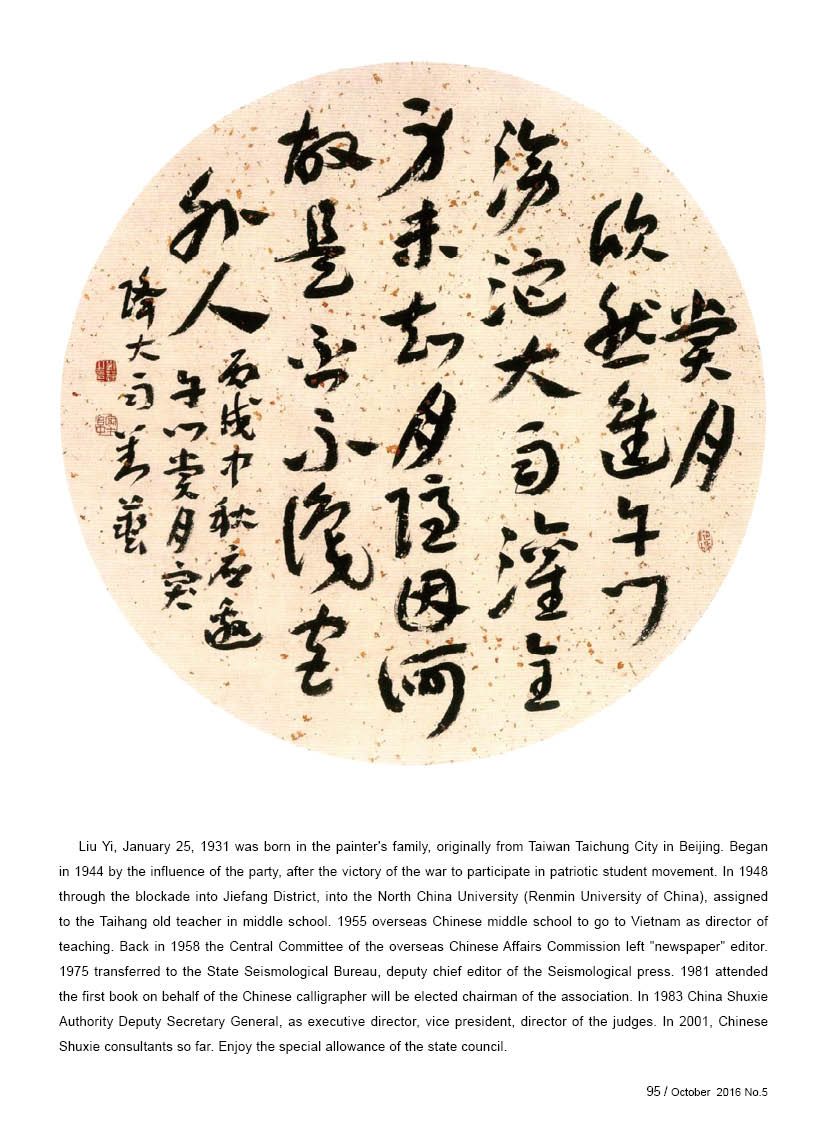 賞月
欣然進午门
滂沱大雨灌全
身未知月隐因何
故是否不識宫
外人
丙戌中秋应邀
午门賞月突
降大雨 刘藝
Liu Yi, January 25, 1931 was born in the painter's family, originally from Taiwan Taichung City in Beijing. Began
in 1944 by the influence of the party, after the victory of the war to participate in patriotic student movement. In 1948
through the blockade into Jiefang District, into the North China University (Renmin University of China), assigned
to the Taihang old teacher in middle school. 1955 overseas Chinese middle school to go to Vietnam as director of
teaching. Back in 1958 the Central Committee of the overseas Chinese Affairs Commission left "newspaper" editor.
1975 transferred to the State Seismological Bureau, deputy chief editor of the Seismological press. 1981 attended
the first book on behalf of the Chinese calligrapher will be elected chairman of the association. In 1983 China Shuxie
Authority Deputy Secretary General, as executive director, vice president, director of the judges. In 2001, Chinese
Shuxie consultants so far. Enjoy the special allowance of the state council.
95 / October 2016 No.5